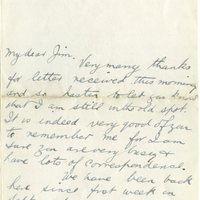 My dear Jim. Very many thanks
for letter received this morning
and so hasten to let you know
that I am still in the old spot.
It is indeed very good of you
to remember me for I am
sure you are very busy &
have lots of correspondence.
We have been back
here since first week in